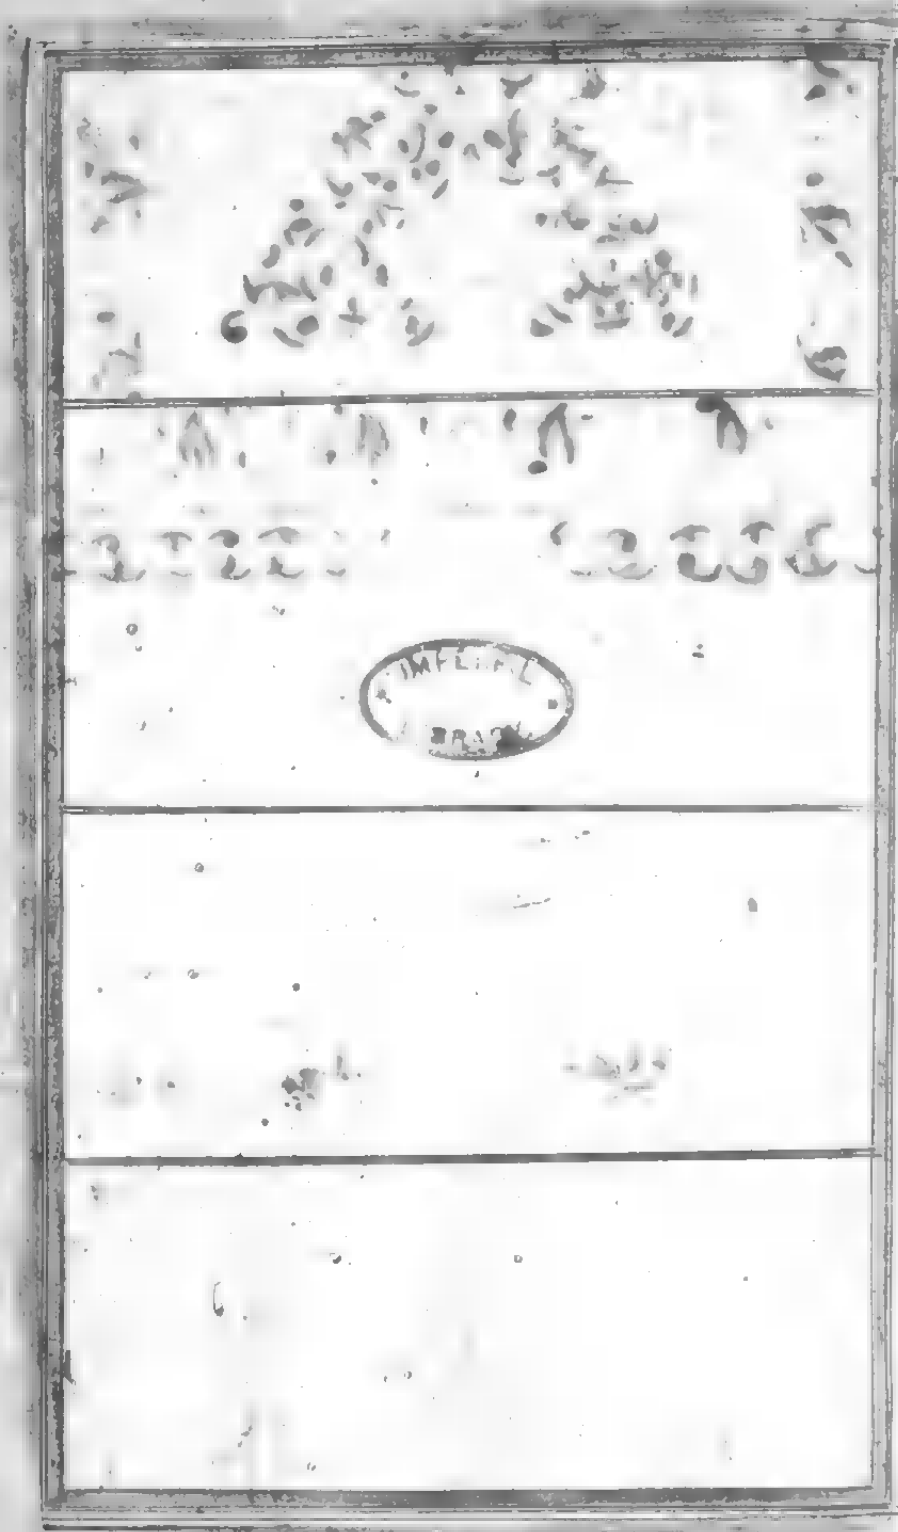 IMPERIAL
LIBRARY